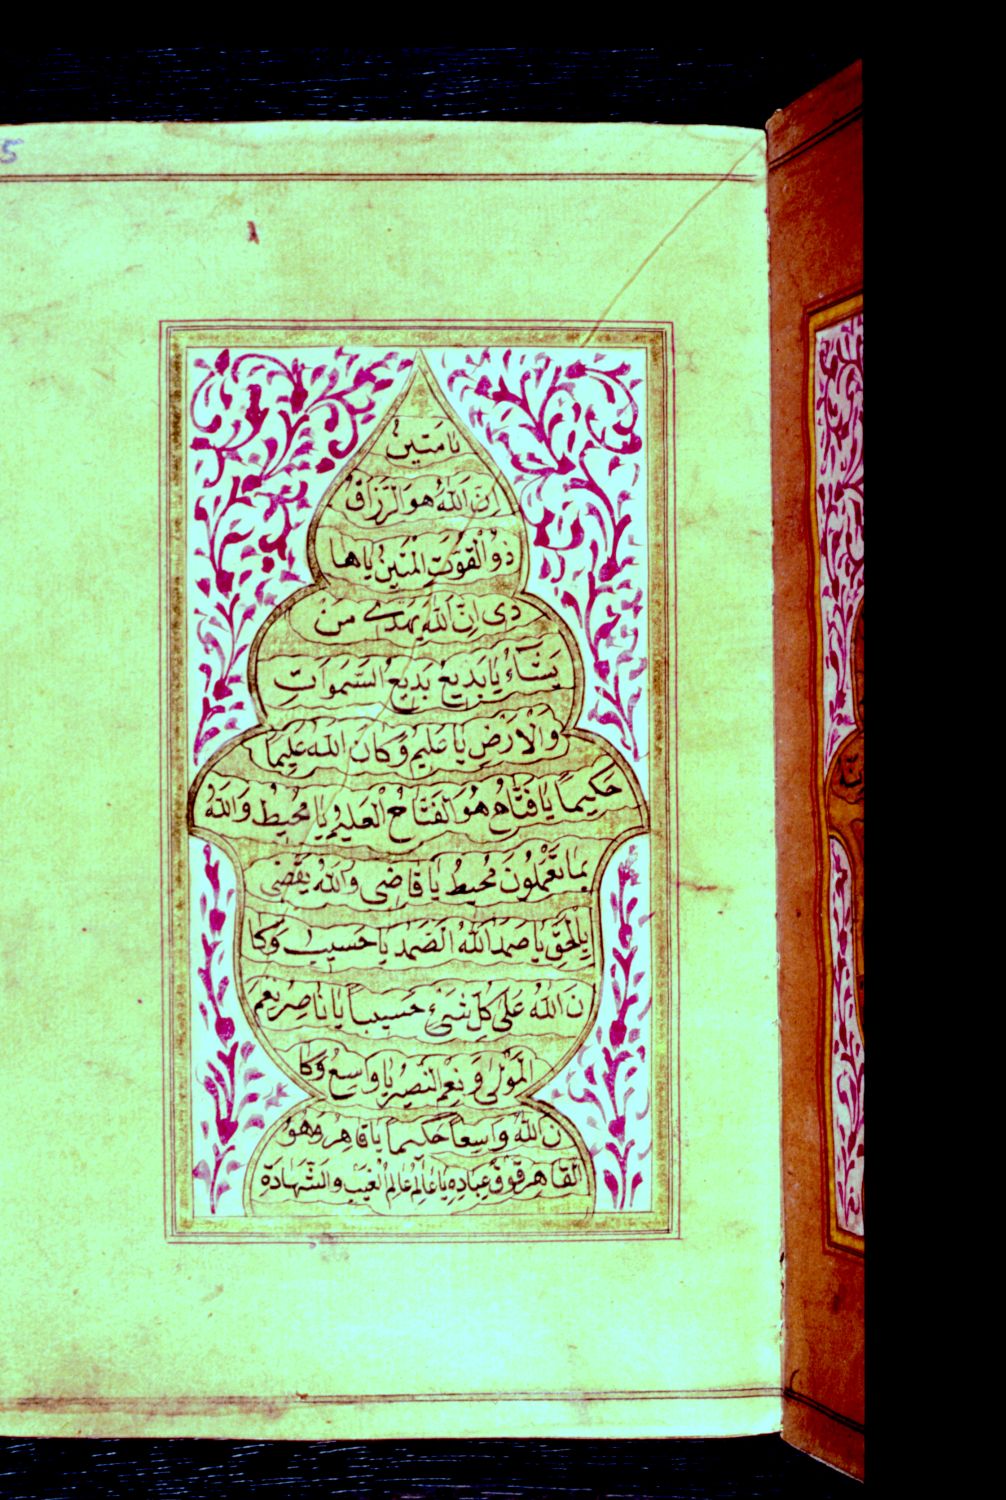 5
يَا مَتِينُ
إِنَّ اللّٰهَ هُوَ الرَّزَّاقُ
ذُو الْقُوَّتِ الْمَتِينُ يَا هَا
دِى اِنَّ اللّٰهَ يَهْدِے مَنْ
يَشَآءُ يَا بَدِيعُ بَدِيعُ السَّمَوَاتِ
وَالْاَرْضِ يَا عَلِيمُ وَكَانَ اللّٰهُ عَلِيماً
حَكِيماً يَا فَتَّاحُ هُوَ الْفَتَّاحُ الْعَلِيمُ يَا مُحِيطُ وَاللّٰهُ
بِمَا تَعْمَلُونَ مُحِيطُ يَا قَاضِى وَاللّٰهُ يَقْضِى
بِالْحَقِّ يَا صَمَدُ اللّٰهُ الصَّمَدُ يَا حَسِيبُ وَكَا
نَ اللّٰهُ عَلَى كُلِّ شَىْءٍ حَسِيباً يَا نَاصِرُ نِعْمَ
الْمَوْلٰى وَ نِعْمَ النَّصِيرُ يَا وَاسِعُ وَكَا
نَ اللّٰهُ وَاسِعاً حَكِيماً يَا قَاهِرُ وَهُوَ
الْقَاهِرُ فَوْقَ عِبَادِهِ يَا عَالِمُ عَالِمُ الْغَيْبِ وَالشَّهَادَةِ